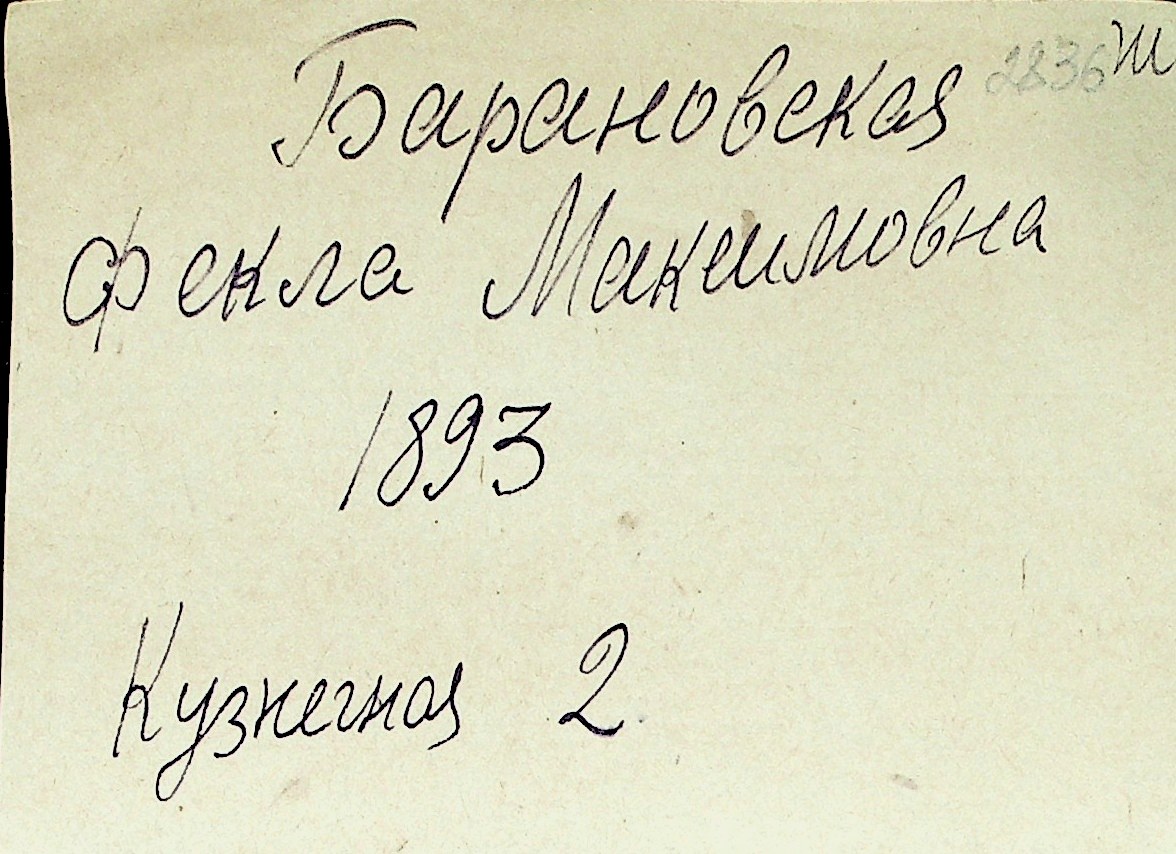 Барановская 2836 Ж
Фекла Максимовна
1893
Кузнечная 2